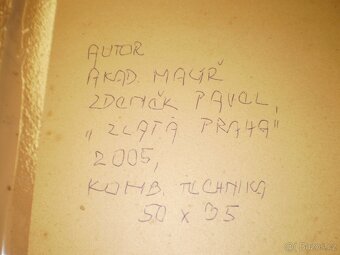 AUTOR
AKAD. MALÍŘ
ZDENĚK PAVEL,
„ZLATÁ PRAHA"
2005,
KOMB. TECHNIKA
50 x 35